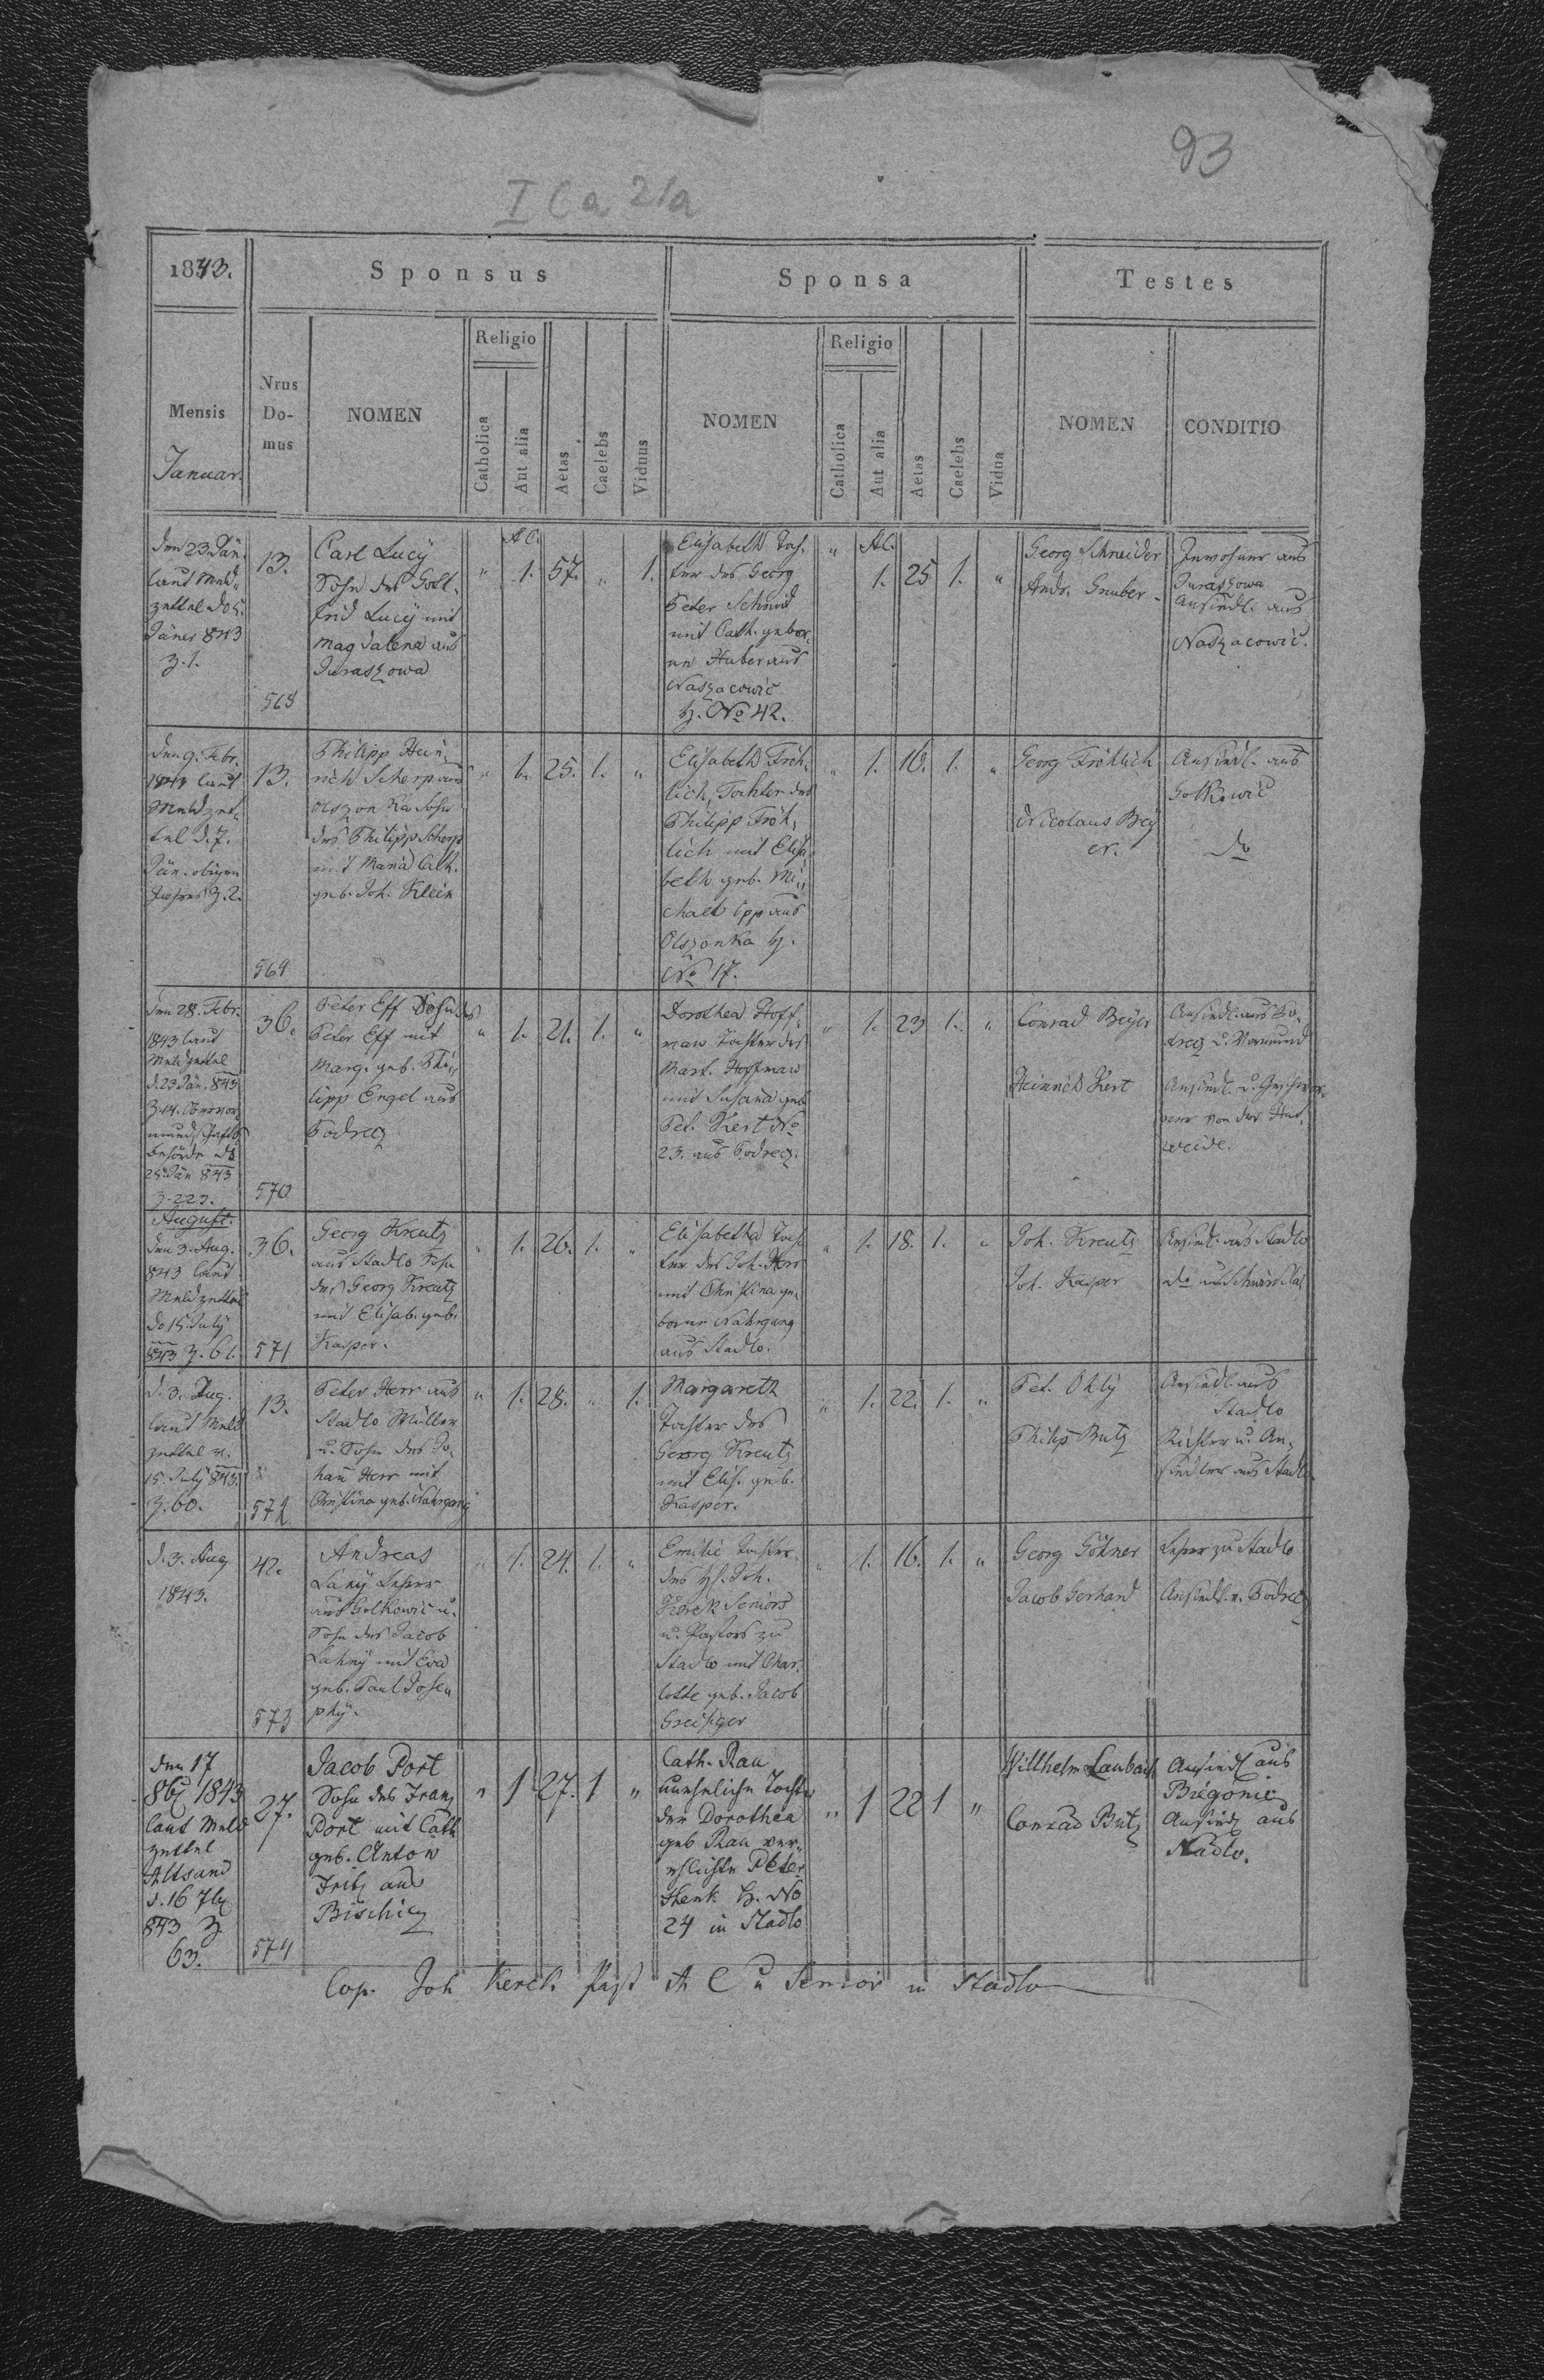 93
I C a 21a
1843.
Sponsus
Sponsa
Testes
Mensis
Januar.
Nrus
Do-
mus
NOMEN
Religio
Catholica
Aut alia
Aetas
Caelebs
Viduus
NOMEN
Religio
Catholica
Aut alia
Aetas
Caelebs
Vidua
NOMEN
CONDITIO
den 23. Jän.
laut Meld-
zettel do 5.
Jäner 843
Z. 1.
13.
568
Carl Lucÿ
Sohn des Gott-
frid Lucÿ mit
Magdalena aus
Juraszowa
" A.C. 1. 57. " 1.
Elisabeth Toch-
ter des Georg
Peter Schmid
mit Cath. gebor-
nen Huber aus
Naszacowic
H. No 42.
" A.C. 1. 25 1. "
Georg Schneider
Andr. Gruber
Inwohner aus
Juraszowa
Ansiedl. aus
Naszacowic.
den 9. Febr.
1843 laut
Meldzet-
tel d. 7.
Jän. obigen
Jahres Z. 2.
13.
569
Philipp Hein-
rich Scherp aus
Olszonka Sohn
des Philipp Scherp
mit Maria Cath.
geb. Joh. Klein
" 1. 25. 1. "
Elisabeth Fröh-
lich, Tochter des
Philipp Fröh-
lich mit Elisa-
beth geb. Mi-
chael Ipp aus
Olszonka H.
No 17.
" 1. 16. 1. "
Georg Fröhlich
Nicolaus Bey
er.
Ansiedl. aus
Golkowic
do
den 28. Febr.
1843 laut
Meldzettel
d. 23 Jän. 843
Z. 14. Obervor-
mundschafts
behörde do
25. Jän 843
Z. 223.
36.
570
Peter Eff Sohn des
Peter Eff mit
Marg. geb. Phi-
lipp Engel aus
Podrecz
" 1. 21. 1. "
Dorothea Hoff-
man Tochter des
Mart. Hoffman
mit Susana geb.
Pet. Kert No
23. aus Podrecz.
" 1. 23 1. "
Conrad Beÿer
Heinrich Kert
Ansiedl. aus Po-
drecz u. Vormund
Ansiedl. u. Geschwor-
ner von der Hut-
weide.
August.
den 3. Aug.
843 laut
Meldzettel
do 15. July
843 Z. 61.
36.
571
Georg Kreutz
aus Stadlo Sohn
des Georg Kreutz
mit Elisab. geb.
Kasper.
" 1. 26. 1. "
Elisabetha Toch-
ter des Joh. Herr
mit Christina ge-
borne Nahrgang
aus Stadlo.
" 1. 18. 1. "
Joh. Kreutz
Joh. Kasper
Ansiedl. aus Stadlo
do
d. 3. Aug.
laut Meld
zettel v.
15. July 843.
Z. 60.
13.
572
Peter Herr aus
Stadlo Müller
u. Sohn des Jo-
han Herr mit
Christina geb. Nahrgang
" 1. 28. " 1.
Margareth
Tochter des
Georg Kreutz
mit Elis. geb.
Kasper.
" 1. 22. 1. "
Pet. Ohlÿ
Philip Butz
Ansiedl. aus
Stadlo
Richter u. An-
siedler aus Stadlo
d. 3. Aug.
1843.
42.
573
Andreas
Lanÿ Lehrer
aus Golkowic u.
Sohn des Jacob
Lahnÿ mit Eva
geb. Paul Jose-
phÿ.
" 1. 24. 1. "
Emilie Tochter
des H. Joh.
Kerck Seniors
u. Pastors zu
Stadlo mit Char-
lotte geb. Jacob
Greisiger
" 1. 16. 1. "
Georg Göhner
Jacob Gerhard
Lehrer zu Stadlo
Ansiedl. v. Podrecz
den 17
8b 1843
laut Meld
zettel
Altsand
d. 16 7b
843 Z
63.
27.
574
Jacob Port
Sohn des Franz
Port mit Cath
geb. Anton
Fritz aus
" 1 27. 1 "
Cath. Rau
uneheliche Tochter
der Dorothea
geb Rau ver-
ehlichte Peter
Henk H. No
24 in Stadlo
" 1 22 1 "
Willhelm Laubach
Conrad Butz
Ansiedl aus
Biegonic
Ansiedl aus
Stadlo.
Cop. Joh Kerck Past A C u Senior in Stadlo